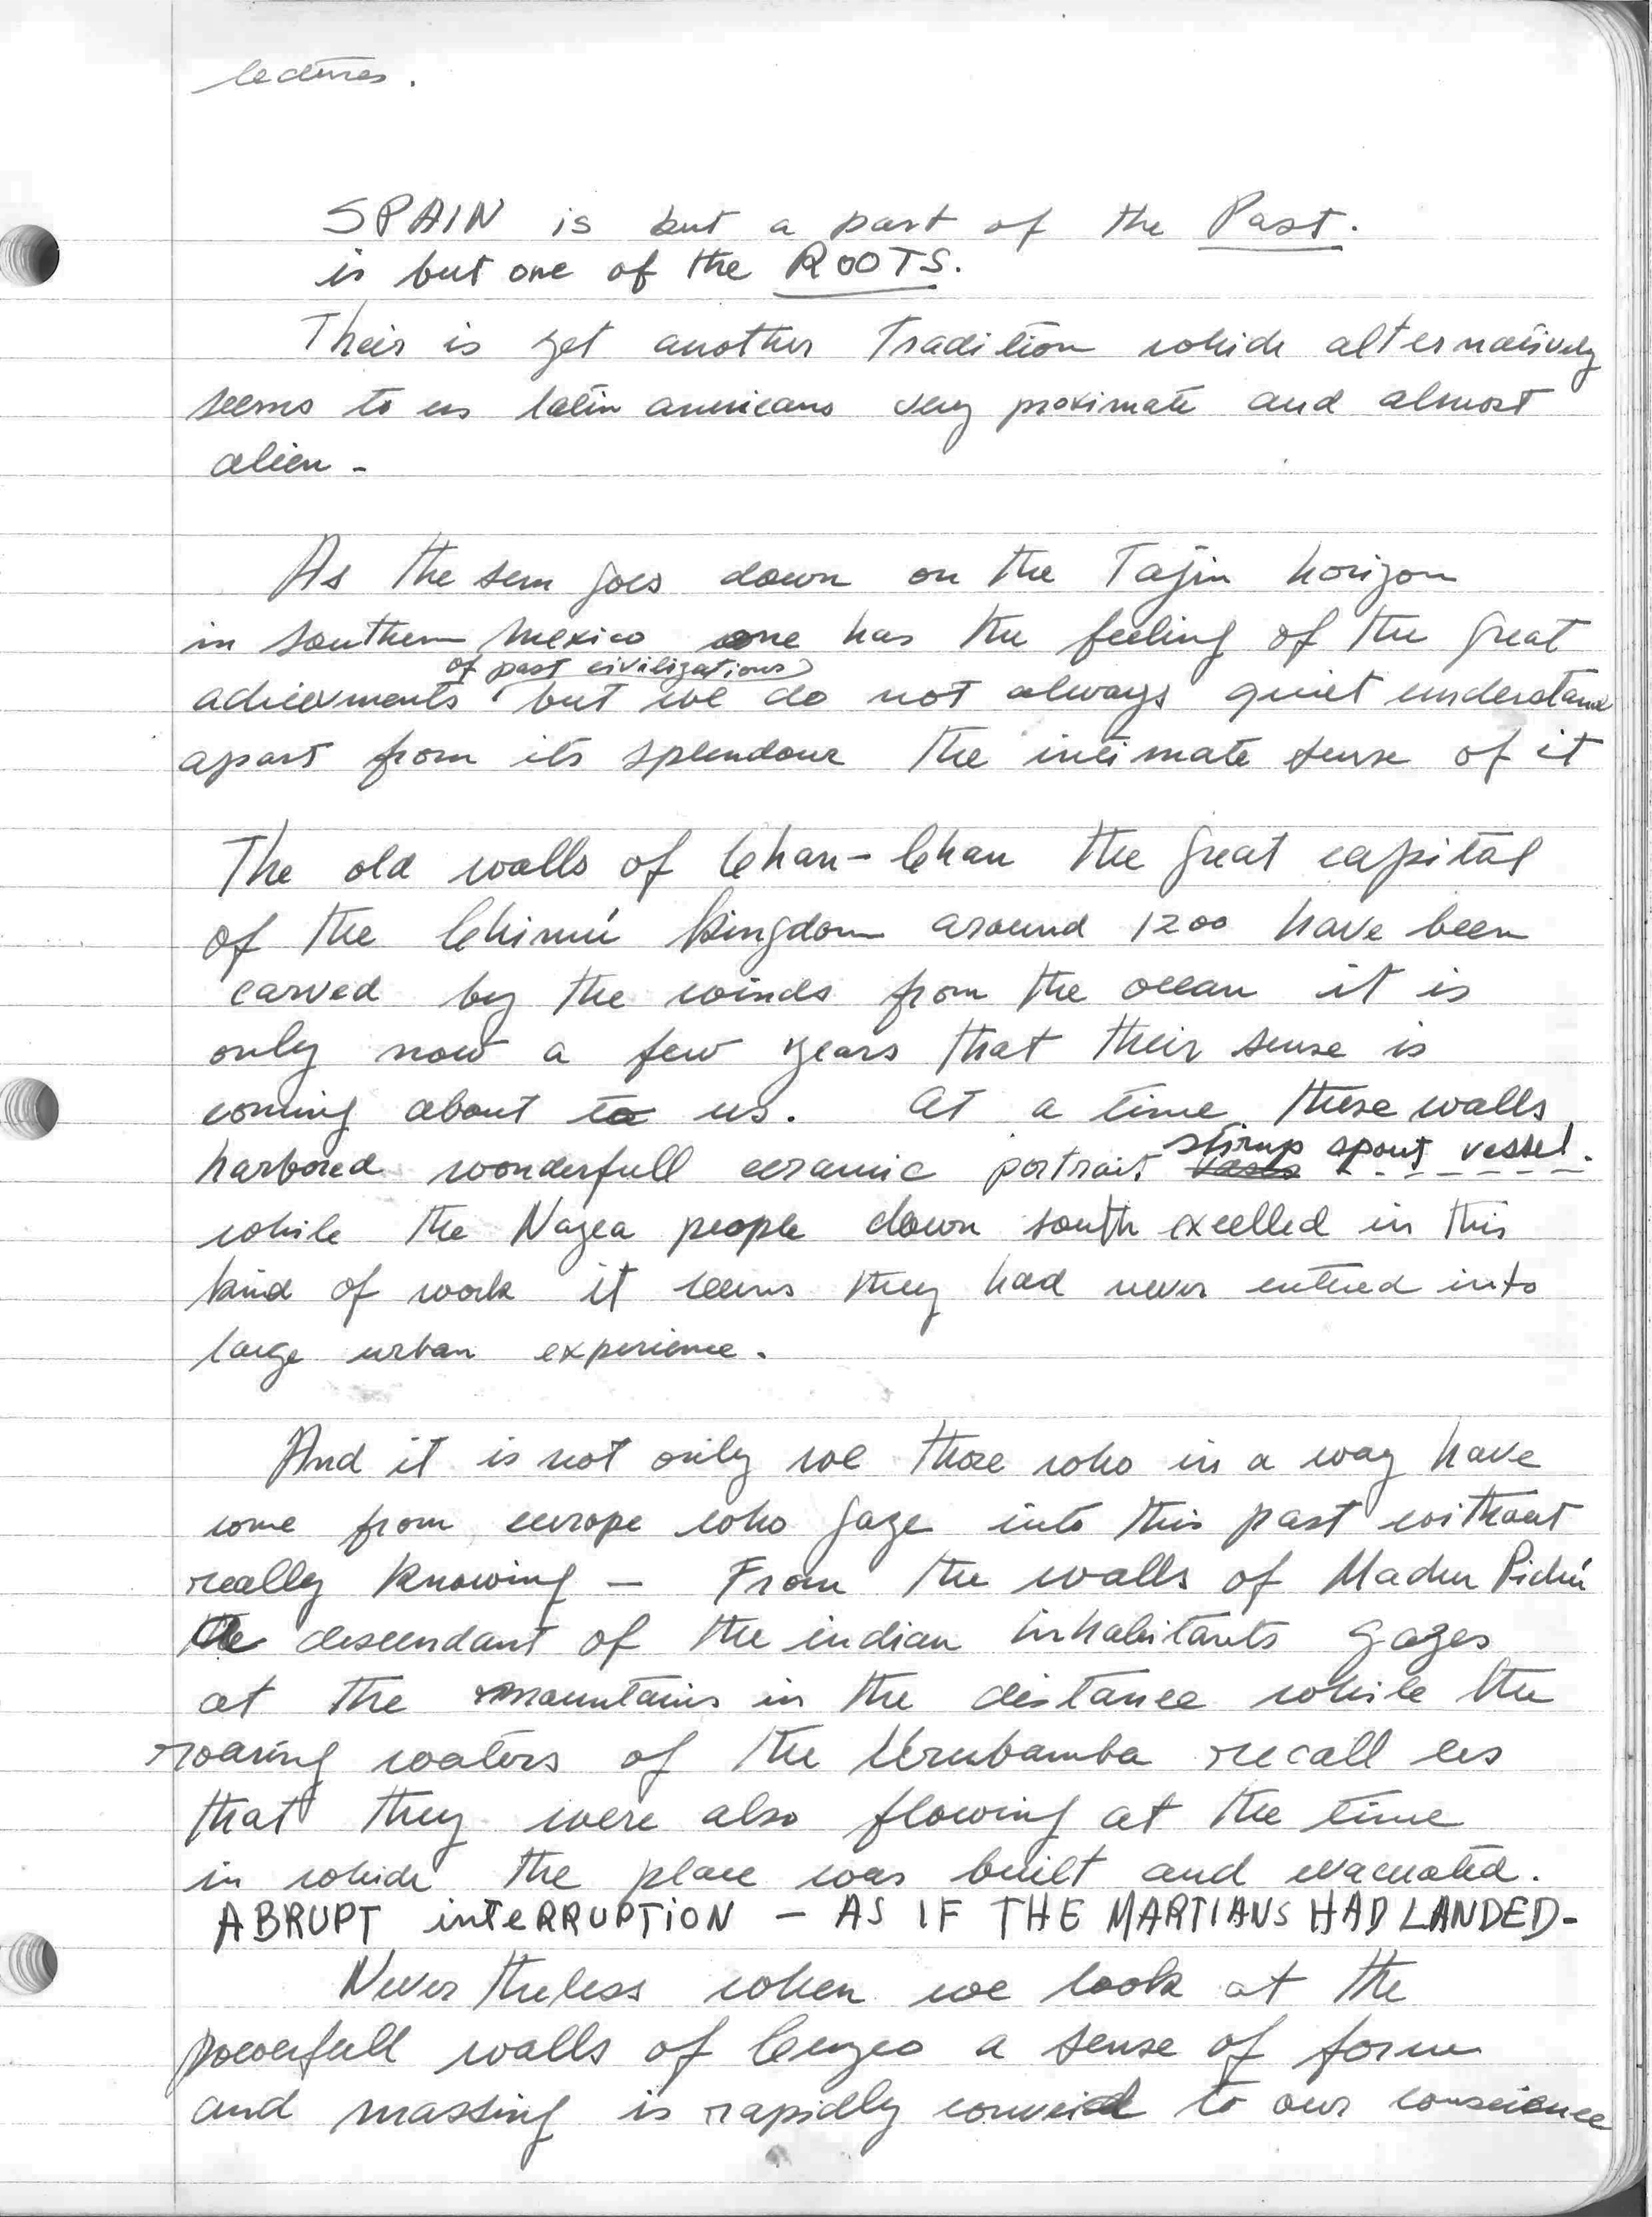 lectures.
SPAIN is but a part of the Past.
is but one of the ROOTS.
Their is yet another Tradition which alternatively
seems to us latin americans very proximate and almost
alien -
As the sun goes down on the Tajin horizon
in southern Mexico one has the feeling of the great
of past civilizations
achievments but we do not always quiet understand
apart from its splendour the intimate sense of it
The old walls of Chan-Chan the great capital
of the Chimú Kingdom around 1200 have been
carved by the winds from the ocean it is
only now a few years that their sense is
coming about to us. At a time these walls
stirrup spout vessel.
harbored wonderfull ceramic portrait vases
while the Nazca people down south excelled in this
kind of work it seems they had never entered into
large urban experience.
And it is not only we those who in a way have
come from europe who gaze into this past without
really knowing - From the walls of Machu Pichú
the descendant of the indian inhabitants gazes
at the mountains in the distance while the
roaring waters of the Urubamba recall us
that they were also flowing at the time
in which the place was built and evacuated.
ABRUPT inteRRUPTiON - AS IF THE MARTIANS HAD LANDED-
Never theless when we look at the
powerfull walls of Cuzco a sense of form
and massing is rapidly conveid to our conscience